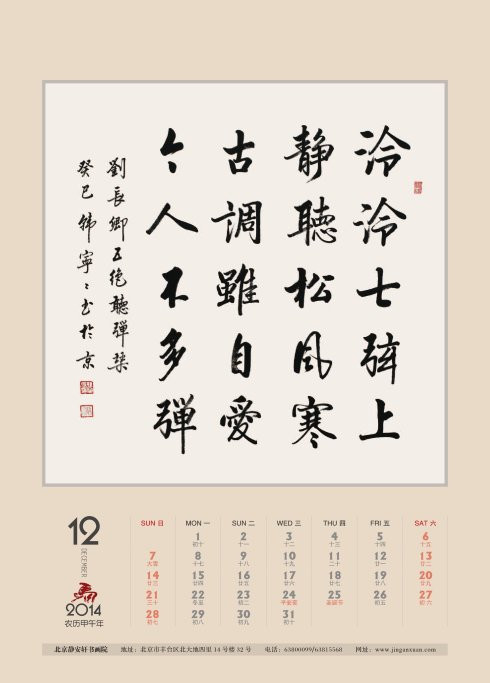 泠泠七弦上
静聽松風寒
古調雖自愛
今人不多彈
劉長卿五绝聽彈琴
癸巳韩寧〻书於京
12
DECEMBER
2014
农历甲午年
SUN 日 MON 一 SUN 二 WED 三 THU 四 FRI 五 SAT 六
1 2 3 4 5 6
初十 十一 十二 十三 十四 十五
7 8 9 10 11 12 13
大雪 十七 十八 十九 二十 廿一 廿二
14 15 16 17 18 19 20
廿三 廿四 廿五 廿六 廿七 廿八 廿九
21 22 23 24 25 26 27
三十 冬至 初二 平安夜 圣诞节 初五 初六
28 29 30 31
初七 初八 初九 初十
北京静安轩书画院 地址：北京市丰台区北大地四里14号楼32号 电话：63800099/63815568 网址：www.jinganxuan.com